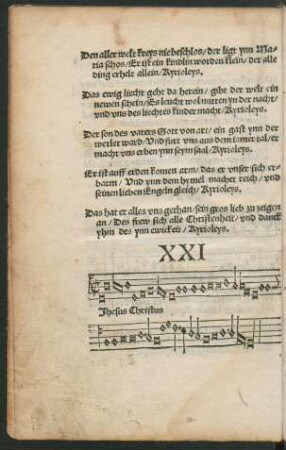 Den aller welt kreys nie beschlos / der ligt ynn Ma-
ria schos / Er ist ein kindlin worden klein / der alle
ding erhelt allein / Kyrioleys.
Das ewig liecht geht da herein / gibt der welt ein
newen schein / Es leucht wol mitten yn der nacht /
vnd vns des liechtes kinder macht / Kyrioleys.
Der son des vaters Gott von art / ein gast ynn der
werlet ward / Vnd furt vns aus dem iamertal / er
macht vns erben ynn seym saal / Kyrioleys.
Er ist auff erden komen arm / das er vnser sich er-
barm / Vnd ynn dem hymel machet reich / vnd
seinen lieben Engeln gleich / Kyrioleys.
Das hat er alles vns gethan / sein gros lieb zu zeigen
an / Des frew sich alle Christenheit / vnd danck
yhm des ynn ewickeit / Kyrioleys.
XXI
Jhesus Christus